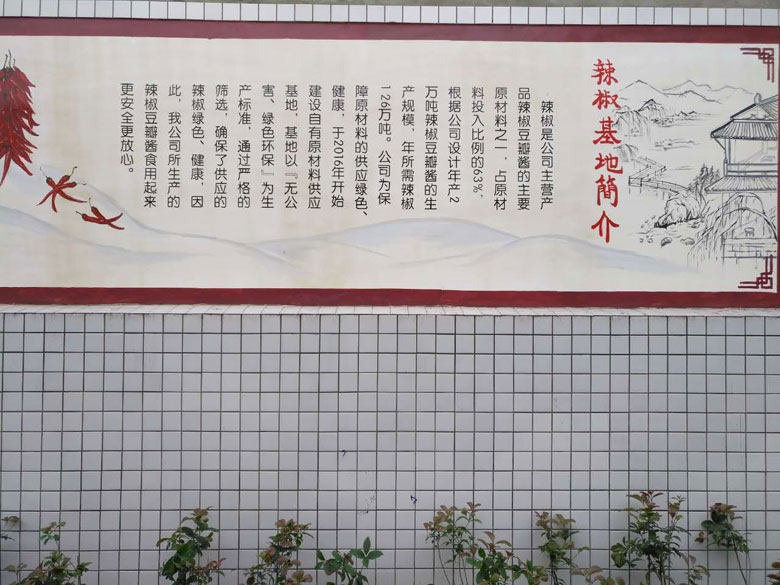 辣椒基地簡介
辣椒是公司主营产
品辣椒豆瓣酱的主要
原材料之一，占原材
料投入比例的63%，
根据公司设计年产2
万吨辣椒豆瓣酱的生
产规模，年所需辣椒
1.26万吨。公司为保
障原材料的供应绿色、
健康，于2016年开始
建设自有原材料供应
基地，基地以『无公
害、绿色环保』为生
产标准，通过严格的
筛选，确保了供应的
辣椒绿色、健康，因
此，我公司所生产的
辣椒豆瓣酱食用起来
更安全更放心。